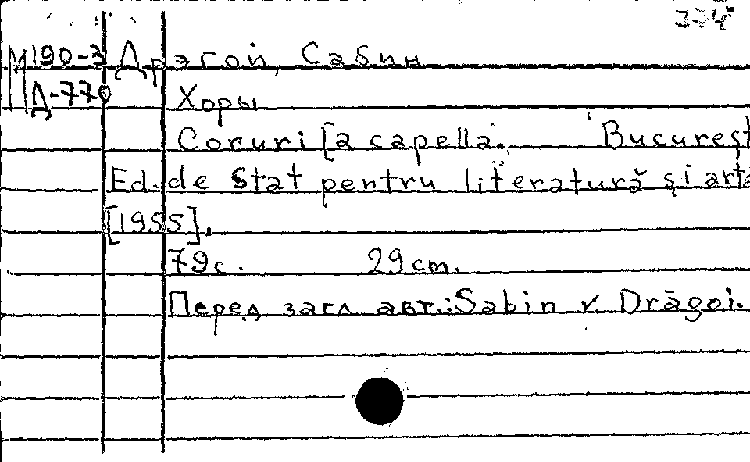 М190-3 Дрэгой, Сабин
Д-770 Хоры
Coruri [a capella. Bucureşt
Ed. de Stat pentru literatură şi artă
[1955].
79с. 29cm.
Перед загл. авт.: Sabin V. Drăgoi.